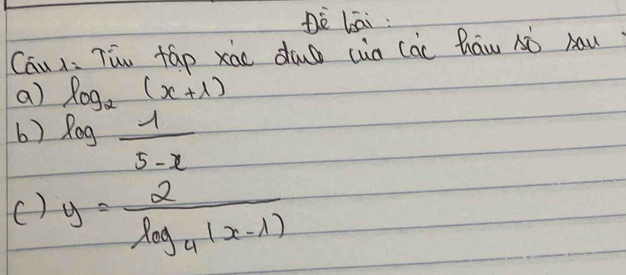 Đề bài:
Câu 1: Tìm tập xác định của các hàm số sau
a) log₂ (x+1)
b) log 1/(5-x)
c) y = 2/(log₄(x-1))